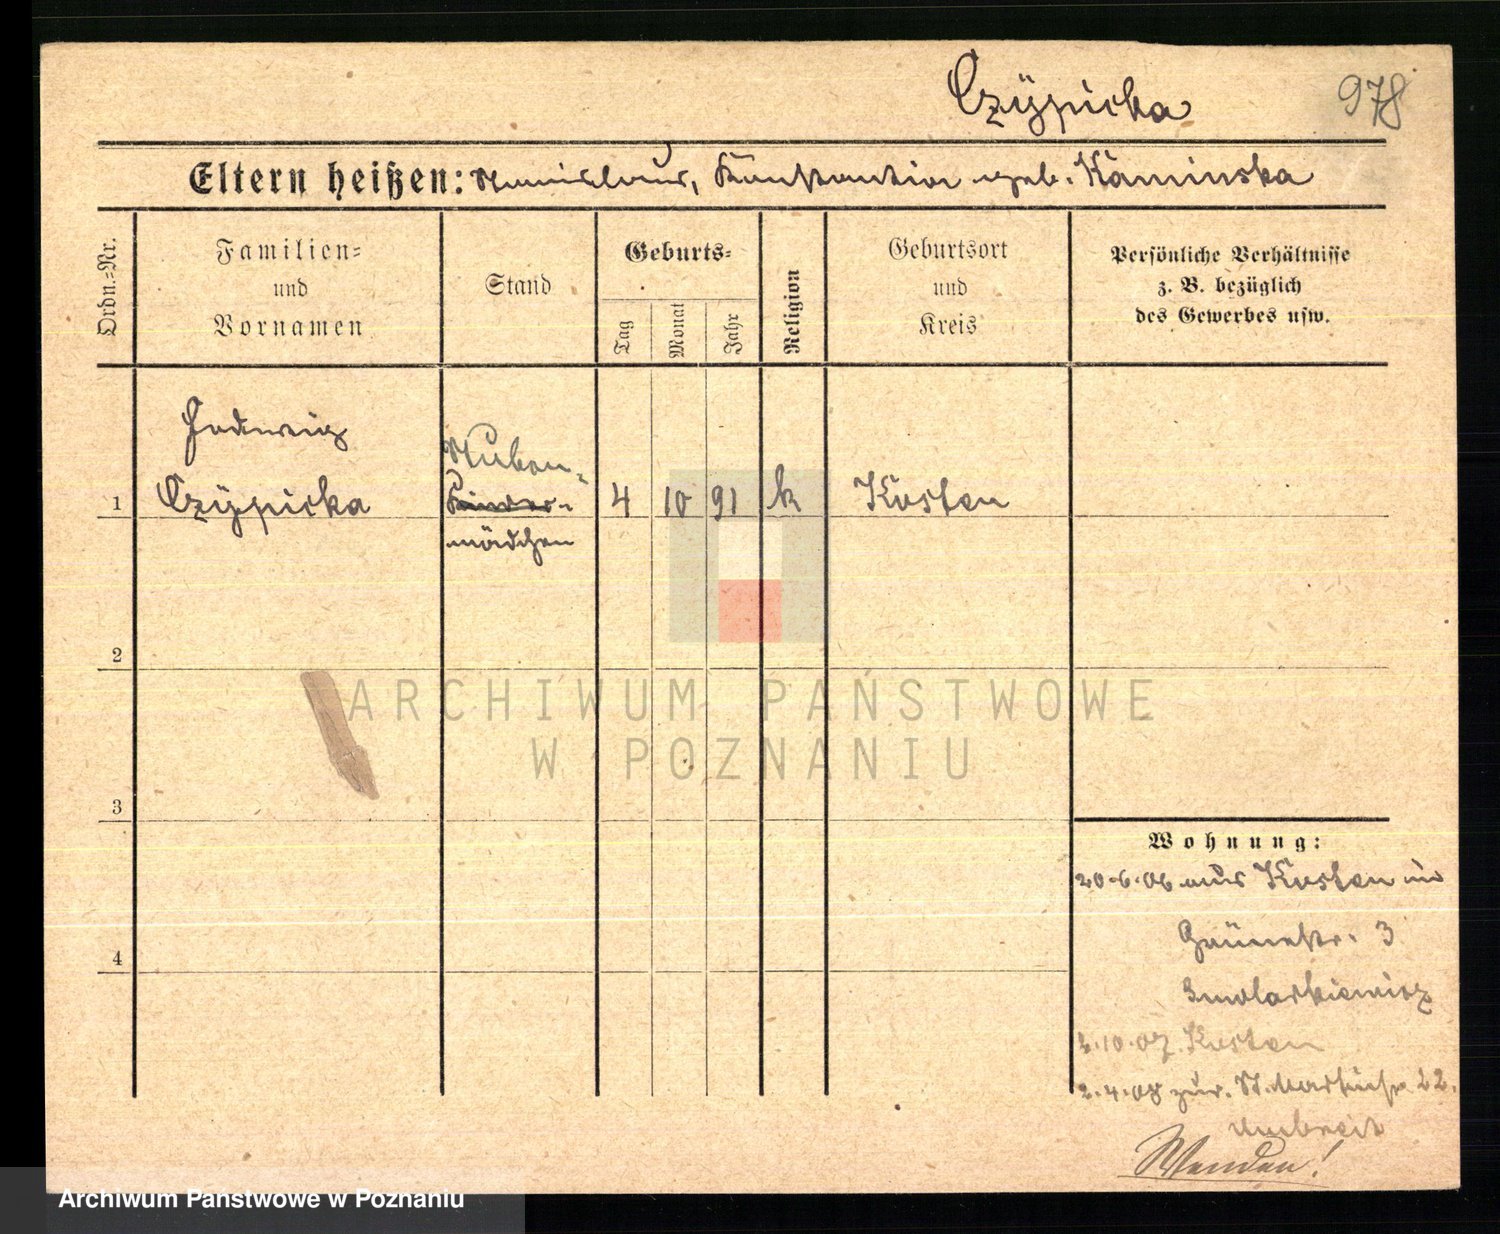 Czÿpicka
978
Eltern heißen: Stanislaus, Konstantia geb. Kaminska
Ordn.-Nr.
Familien-
und
Vornamen
Stand
Geburts-
Tag
Monat
Jahr
Religion
Geburtsort
und
Kreis
Persönliche Verhältnisse
z. B. bezüglich
des Gewerbes usw.
Hedwig
Stuben-
1 Czÿpicka Kinder- 4 10 91 k Kosten
mädchen
2
ARCHIWUM PAŃSTWOWE
W POZNANIU
3
Wohnung:
20.6.06 aus Kosten in
Grünestr. 3
Smolarkiewicz
2.10.07. Kosten
2.4.08 zur. St. Martinstr. 22.
Umbreit
Wenden!
4
Archiwum Państwowe w Poznaniu